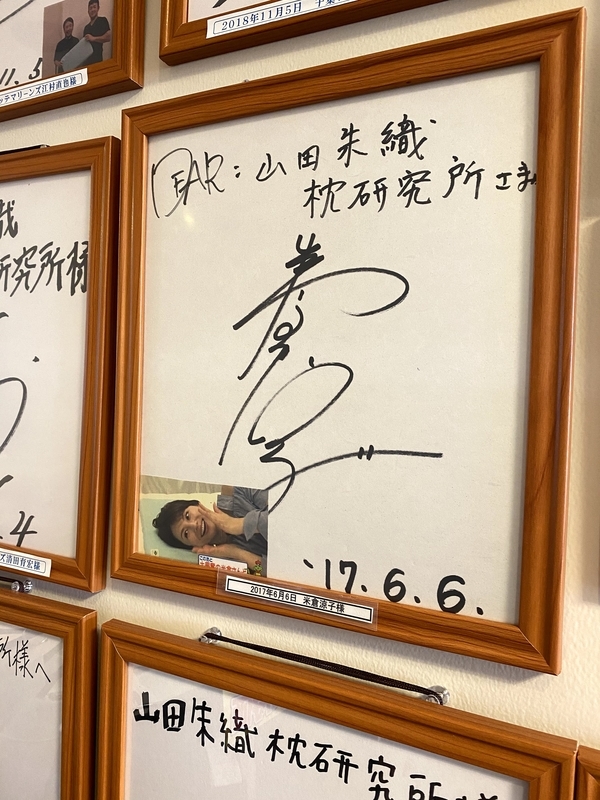 2018年11月5日
11.5
ッテマリーンズ江村直也様
DEAR:山田朱織
枕研究所さま
研究所様
.4
ズ清田育宏様
'17.6.6.
2017年6月6日 米倉涼子様
所様へ
山田朱織枕研究所様